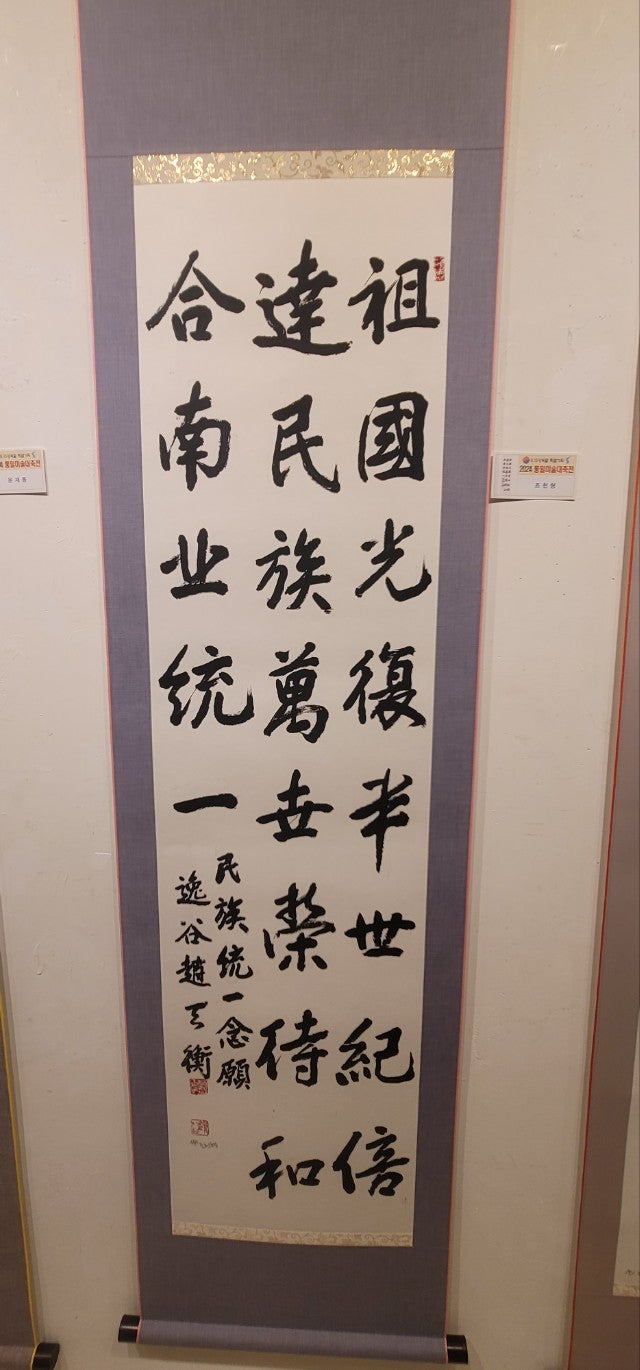 祖國光復半世紀倍
達民族萬卋榮待和
合南北統一
民族統一念願
逸谷趙天衡
2024 통일미술대축전
통일미술대축전